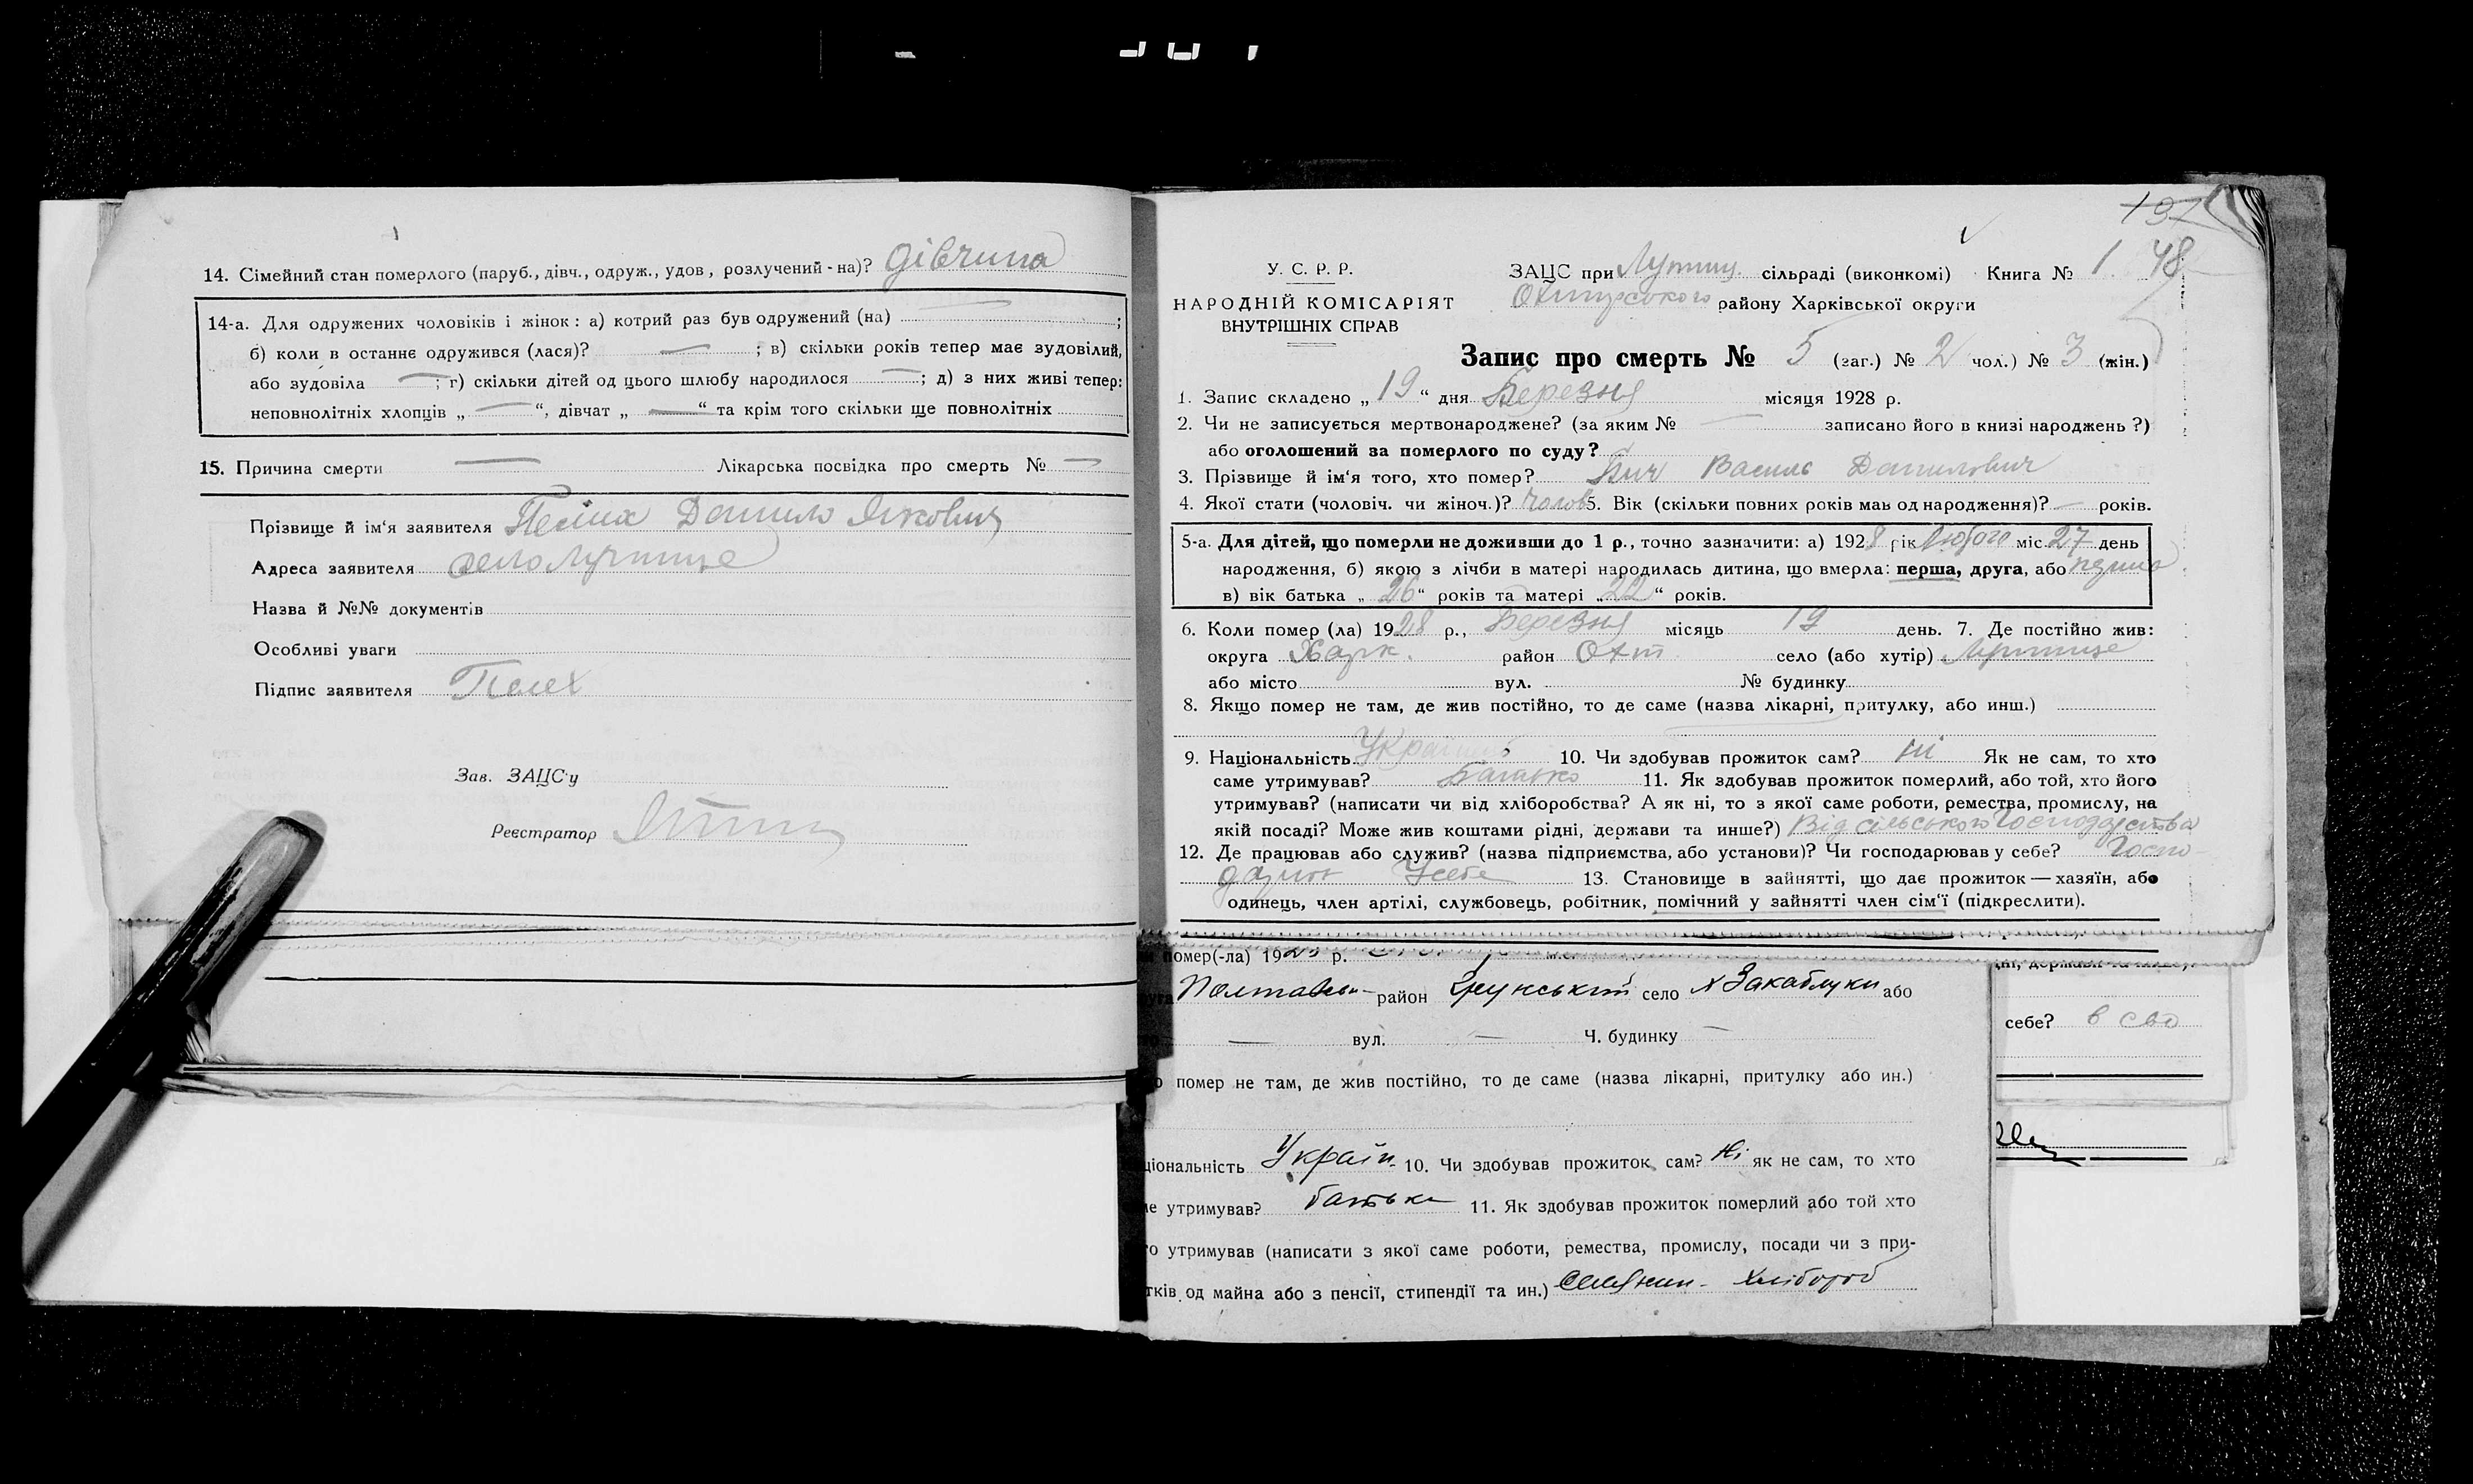 14. Сімейний стан померлого (паруб., дівч., одруж., удов, розлучений-на)? дівчина
14-а. Для одружених чоловіків і жінок: а) котрий раз був одружений (на) —;
б) коли в останнє одружився (лася)? — ; в) скільки років тепер має зудовілий,
або зудовіла — ; г) скільки дітей од цього шлюбу народилося — ; д) з них живі тепер:
неповнолітніх хлопців „ — “, дівчат „ — “ та крім того скільки ще повнолітніх
15. Причина смерти — Лікарська посвідка про смерть № —
Прізвище й ім'я заявителя Данило Якович
Адреса заявителя село Лутище
Назва й №№ документів
Особливі уваги
Підпис заявителя Пелех
Зав. ЗАЦС'у
Реєстратор
197
У. С. Р. Р.
НАРОДНІЙ КОМІСАРІЯТ
ВНУТРІШНІХ СПРАВ
ЗАЦС при Лутищ. сільраді (виконкомі) Книга № 1 48
Охтирського району Харківської округи
Запис про смерть № 5 (заг.) № 2 чол.) № 3 (жін.)
1. Запис складено „ 19 “ дня Березня місяця 1928 р.
2. Чи не записується мертвонароджене? (за яким № — записано його в книзі народжень ?)
або оголошений за померлого по суду?
3. Прізвище й ім'я того, хто помер? Василь Данилович
4. Якої стати (чоловіч. чи жіноч.)? чолов 5. Вік (скільки повних років мав од народження)? — років.
5-а. Для дітей, що померли не доживши до 1 р., точно зазначити: а) 1928 рік Лютого міс. 27 день
народження, б) якою з лічби в матері народилась дитина, що вмерла: перша, друга, або перша
в) вік батька „ 26 “ років та матері „ 22 “ років.
6. Коли помер (ла) 1928 р., Березня місяць 19 день. 7. Де постійно жив:
округа Харк. район Охт село (або хутір) Лутище
або місто вул. № будинку
8. Якщо помер не там, де жив постійно, то де саме (назва лікарні, притулку, або инш.)
9. Національність Україн 10. Чи здобував прожиток сам? ні Як не сам, то хто
саме утримував? Батько 11. Як здобував прожиток померлий, або той, хто його
утримував? (написати чи від хліборобства? А як ні, то з якої саме роботи, ремества, промислу, на
якій посаді? Може жив коштами рідні, держави та инше?) Від сільського господарства
12. Де працював або служив? (назва підприємства, або установи)? Чи господарював у себе? Госпо-
дарює у себе 13. Становище в зайнятті, що дає прожиток — хазяїн, або
одинець, член артілі, службовець, робітник, помічний у зайнятті член сім'ї (підкреслити).
помер(-ла) 192 р.
Полтавськ- район Грунський село х Закаблуки або
— вул. — Ч. будинку —
помер не там, де жив постійно, то де саме (назва лікарні, притулку або ин.)
ціональність Україн. 10. Чи здобував прожиток сам? Ні як не сам, то хто
утримував? батьки 11. Як здобував прожиток померлий або той хто
утримував (написати з якої саме роботи, ремества, промислу, посади чи з при-
тків од майна або з пенсії, стипендії та ин.) Селянин - хлібороб
себе? в сво